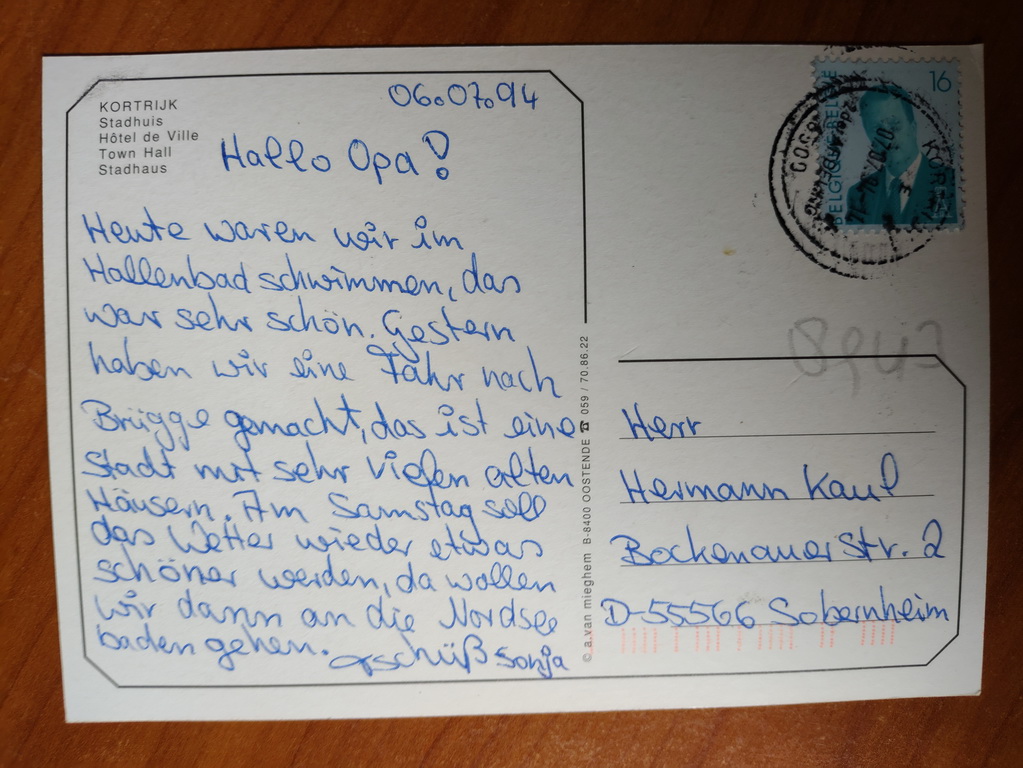 KORTRIJK
Stadhuis
Hôtel de Ville
Town Hall
Stadhaus
06.07.94
Hallo Opa!
Heute waren wir im
Hallenbad schwimmen, das
war sehr schön. Gestern
haben wir eine Fahr nach
Brügge gemacht, das ist eine
Stadt mit sehr vielen alten
Häusern. Am Samstag soll
das Wetter wieder etwas
schöner werden, da wollen
wir dann an die Nordsee
baden gehen.
Tschüß Sonja
© a. van mieghem B-8400 OOSTENDE ☎ 059 / 70.86.22
16
BELGIQUE-BELGIE
KORTRIJK
Herr
Hermann Kaul
Bockenauer Str. 2
D-55566 Sobernheim